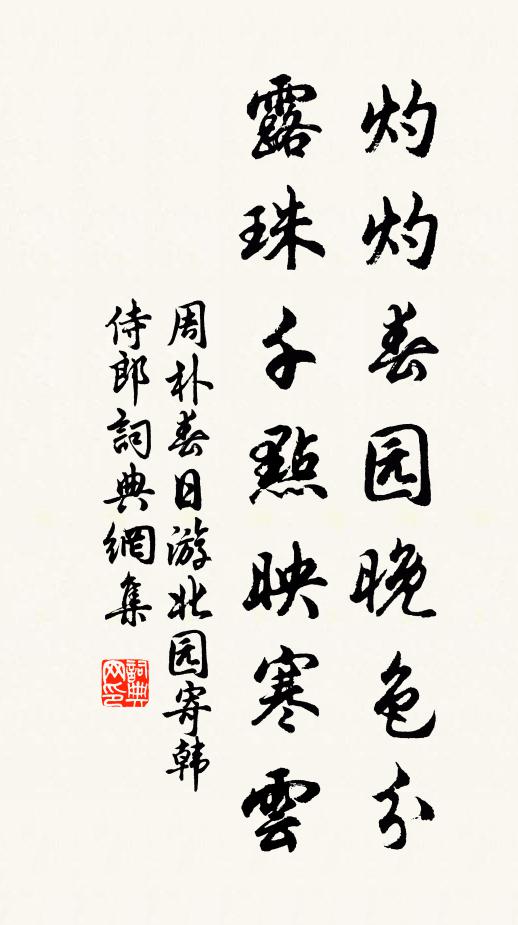 灼灼春园晚色分
露珠千點映寒雲
周朴春日游北园寄韩
侍郎詞典網集
詞典
网印